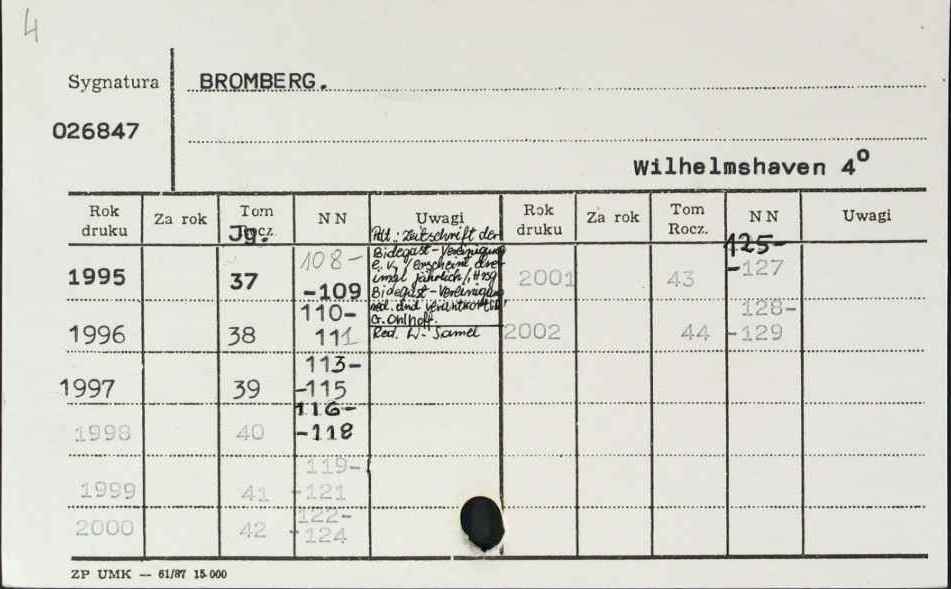 4
Sygnatura BROMBERG.
026847
Wilhelmshaven 4º
Rok druku Za rok Tom Rocz. Jg. N N Uwagi Rok druku Za rok Tom Rocz. N N Uwagi
1995 37 108- -109
Bidegast-Vereinigung
e.V.
jährlich
Bidegast-Vereinigung
G. Ohlhoff.
2001 43 125- -127
1996 38 110- 111 Red. W. Samel 2002 44 128- -129
1997 39 113- -115
1998 40 116- -118
1999 41 119- -121
2000 42 122- -124
ZP UMK — 61/87 15.000